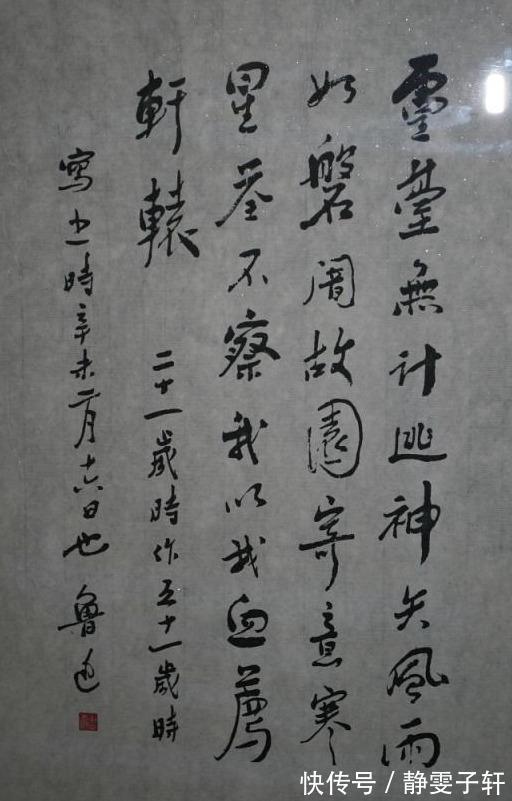 靈臺無計逃神矢風雨
如磐闇故園寄意寒
星荃不察我以我血薦
軒轅 二十一歲時作五十一歲時
寫之時辛未二月十六日也 魯迅
快传号／静雯子轩